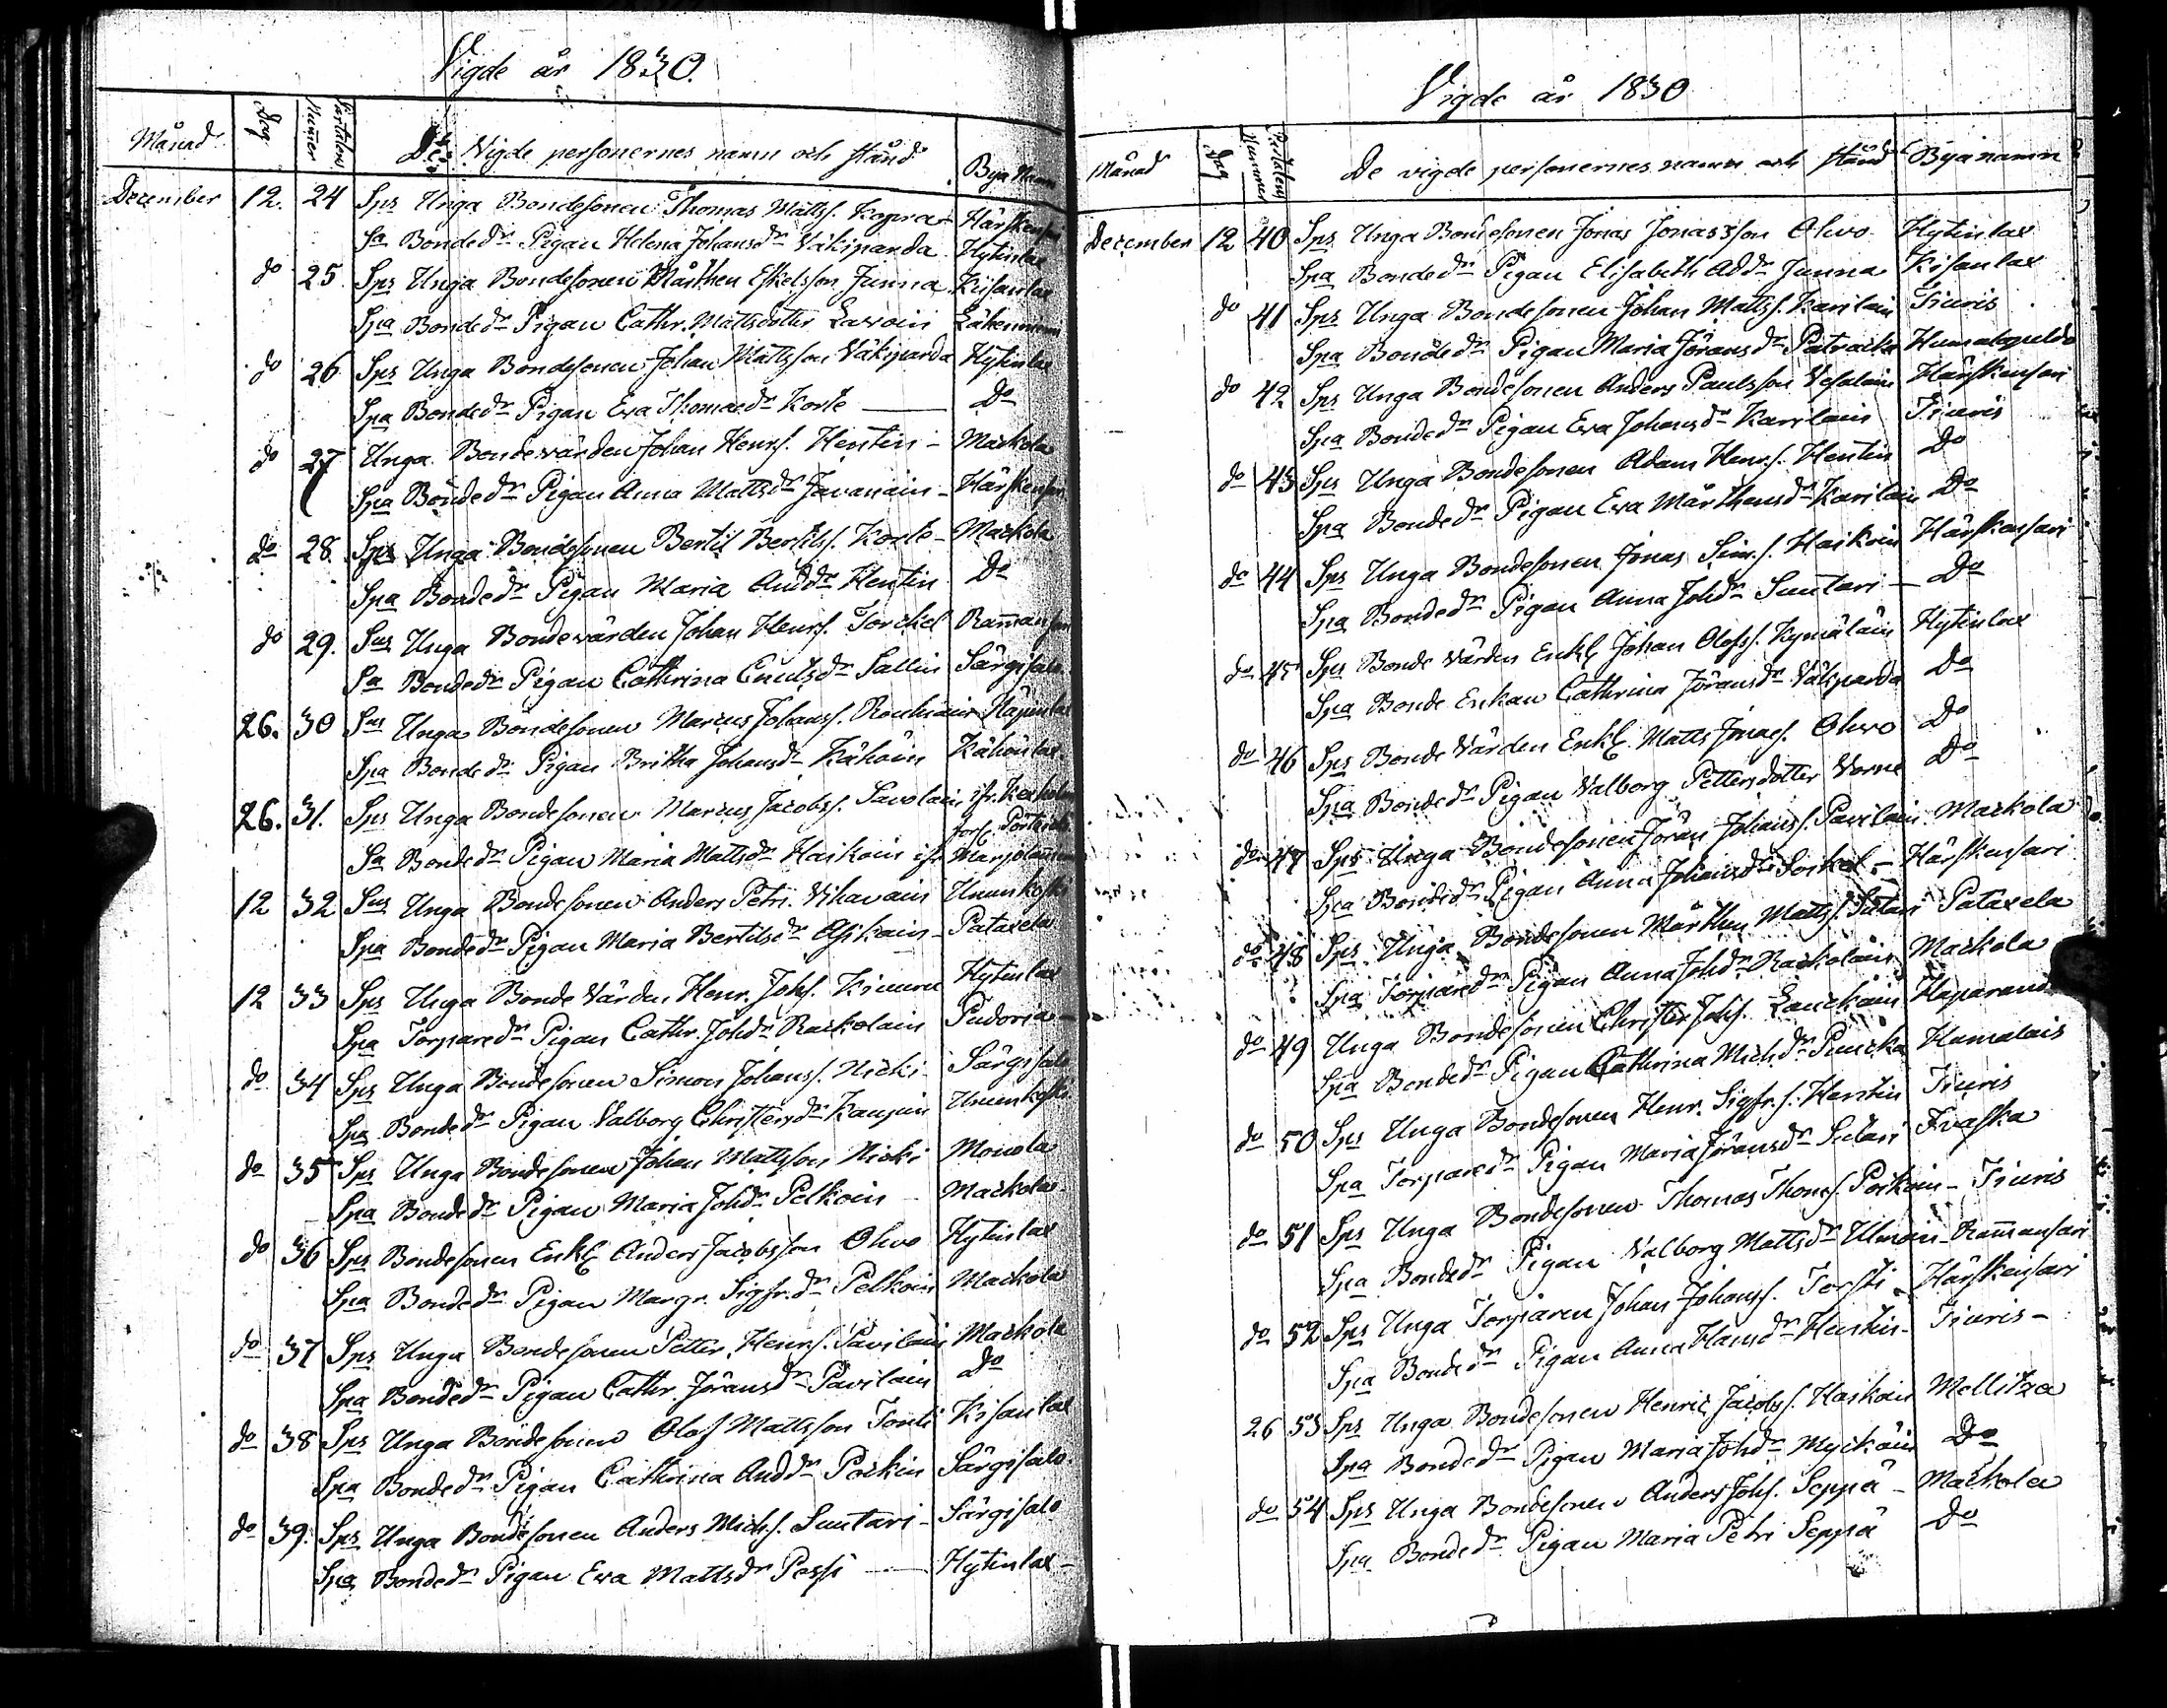 Vigde år 1830.
Månad Dag Partalens Numer De Vigde personernes namn och stånd Bya Namn
December 12. 24 Sps Unga Bondesonen Thomas Mattss. Kapiar Härskensari
Sa Bondedr Pigan Helena Johansdr Väkiparda Hytinlax
do 25. Sps Unga Bondesonen Mårthen Eskelsson Junna Kisanlax
Spa Bondedr Pigan Cathr. Mattsdotter Lavoin
do 26 Sps Unga Bondesonen Johan Mattsson Väkiparda Hytinlax
Spa Bondedr Pigan Eva Thomaedr Korte Do
do 27 Unga Bondevärden Johan Henrs. Hentin - Mackola
Spa Bondedr Pigan Anna Mattsdr Javanain - Härskensari
do 28. Sps Unga Bondesonen Bertil Bertilss. Korte - Mackola
Spa Bondedr Pigan Maria Anddr Hentin Do
do 29. Sps Unga Bondevärden Johan Henrs. Torckel Ramansari
Sa Bondedr Pigan Cathrina Enulsdr Sallin Särgisalo
26. 30 Sps Unga Bondesonen Marcus Johanss. Rouhiain Käpinlax
Spa Bondedr Pigan Britha Johansdr Kähöin Kähönlax
26. 31. Sps Unga Bondesonen Marcus Jacobss. Savolain ifr. Kexholm
förs. Pörtkoski
Sa Bondedr Pigan Maria Mattsdr Haikoin ifr Marjolammi
12 32 Sps Unga Bondesonen Anders Petri. Vihavain Ununkoski
Spa Bondedr Pigan Maria Bertilsdr Asikain - Pataxela
12 33 Sps Unga Bonde Värden Henr. Johs. Kiuuru Hytinlax
Spa Torparedr Pigan Cathr. Johdr Rackolain Pudoria -
do 34 Sps Unga Bondesonen Simon Johanss. Nicki - Särgisalo
Spa Bondedr Pigan Valborg Christersdr Kaupin Ununkoski
do 35 Sps Unga Bondesonen Johan Mattsson Nicki Monola
Spa Bondedr Pigan Maria Johdr Pelkoin Mackola
do 36 Sps Bondesonen Enkl Anders Jacobsson Ohvo Hytinlax
Spa Bondedr Pigan Margr. Sigfr.dr Pelkoin Mackola
do 37 Sps Unga Bondesonen Petter Henrs. Pavilain Mackola
Spa Bondedr Pigan Cathr. Jöransdr Pavilain do
do 38 Sps Unga Bondesonen Olof Mattsson Tonti Kisanlax
Spa Bondedr Pigan Cathrina Anddr Pockin Särgisalo
do 39. Sps Unga Bondesonen Anders Michs. Suntari - Särgisalo
Spa Bondedr Pigan Eva Mattsdr Possi Hytinlax -
Vigde år 1830
Månad Dag Partalens Nummer De vigde personernes namn och stånd Byanamn
December 12 40 Sps Unga Bondesonen Jonas Jonasson Ohvo Hytinlax
Spa Bondedr Pigan Elisabeth Addr Junna Kisanlax
do 41 Sps Unga Bondesonen Johan Mattss. Karilain Tiuris
Spa Bondedr Pigan Maria Jöransdr Patracka
do 42 Sps Unga Bondesonen Anders Paulsson Vesalain Härskensari
Spa Bondedr Pigan Eva Johansdr Karilain Tiuris
do 43 Sps Unga Bondesonen Adam Henrs. Hentin Do
Spa Bondedr Pigan Eva Mårthensdr Karilain Do
do 44 Sps Unga Bondesonen Jonas Sim.s. Haikoin Härskensari
Spa Bondedr Pigan Anna Johdr Suntari Do
do 45 Sps Bonde Värden Enkl Johan Olofss. Kymäläin Hytinlax
Spa Bonde Enkan Cathrina Jöransdr Väkiparda Do
do 46 Sps Bonde Värden Enkl. Matts Jonaes. Ohvo Do
Spa Bondedr Pigan Valborg Pettersdotter Vorne Do
do 47 Sps Unga Bondesonen Jöran Johanss. Pavilain Mackola
Spa Bondedr Pigan Anna Johansdr Torkel - Härskensari
do 48 Sps Unga Bondesonen Mårthen Mattss. Sutari Pataxela
Spa Torparedr Pigan Anna Johdr Rackolain Mackola
do 49 Unga Bondesonen Christer Johs. Lauckain Haparand
Spa Bondedr Pigan Cathrina Michdr Puucka Humalais
do 50 Sps Unga Bondesonen Henr. Sigfr.s. Hentin Tiuris
Spa Torparedr Pigan Maria Jöransdr Sutari Kvaska
do 51 Sps Unga Bondesonen Thomas Thoms. Poikoin - Tiuris
Spa Bondedr Pigan Valborg Mattsdr Ulmoin - Ramansari
do 52 Sps Unga Torparen Johan Johanss. Torsti Härskensari
Spa Bondedr Pigan Anna Hansdr Hentin - Tiuris -
26 53 Sps Unga Bondesonen Henric Jacobs. Haikoin Mellitza
Spa Bondedr Pigan Maria Johdr Myckäin Do
do 54 Sps Unga Bondesonen Anders Johs. Seppä - Mackola
Spa Bondedr Pigan Maria Petri Seppä Do